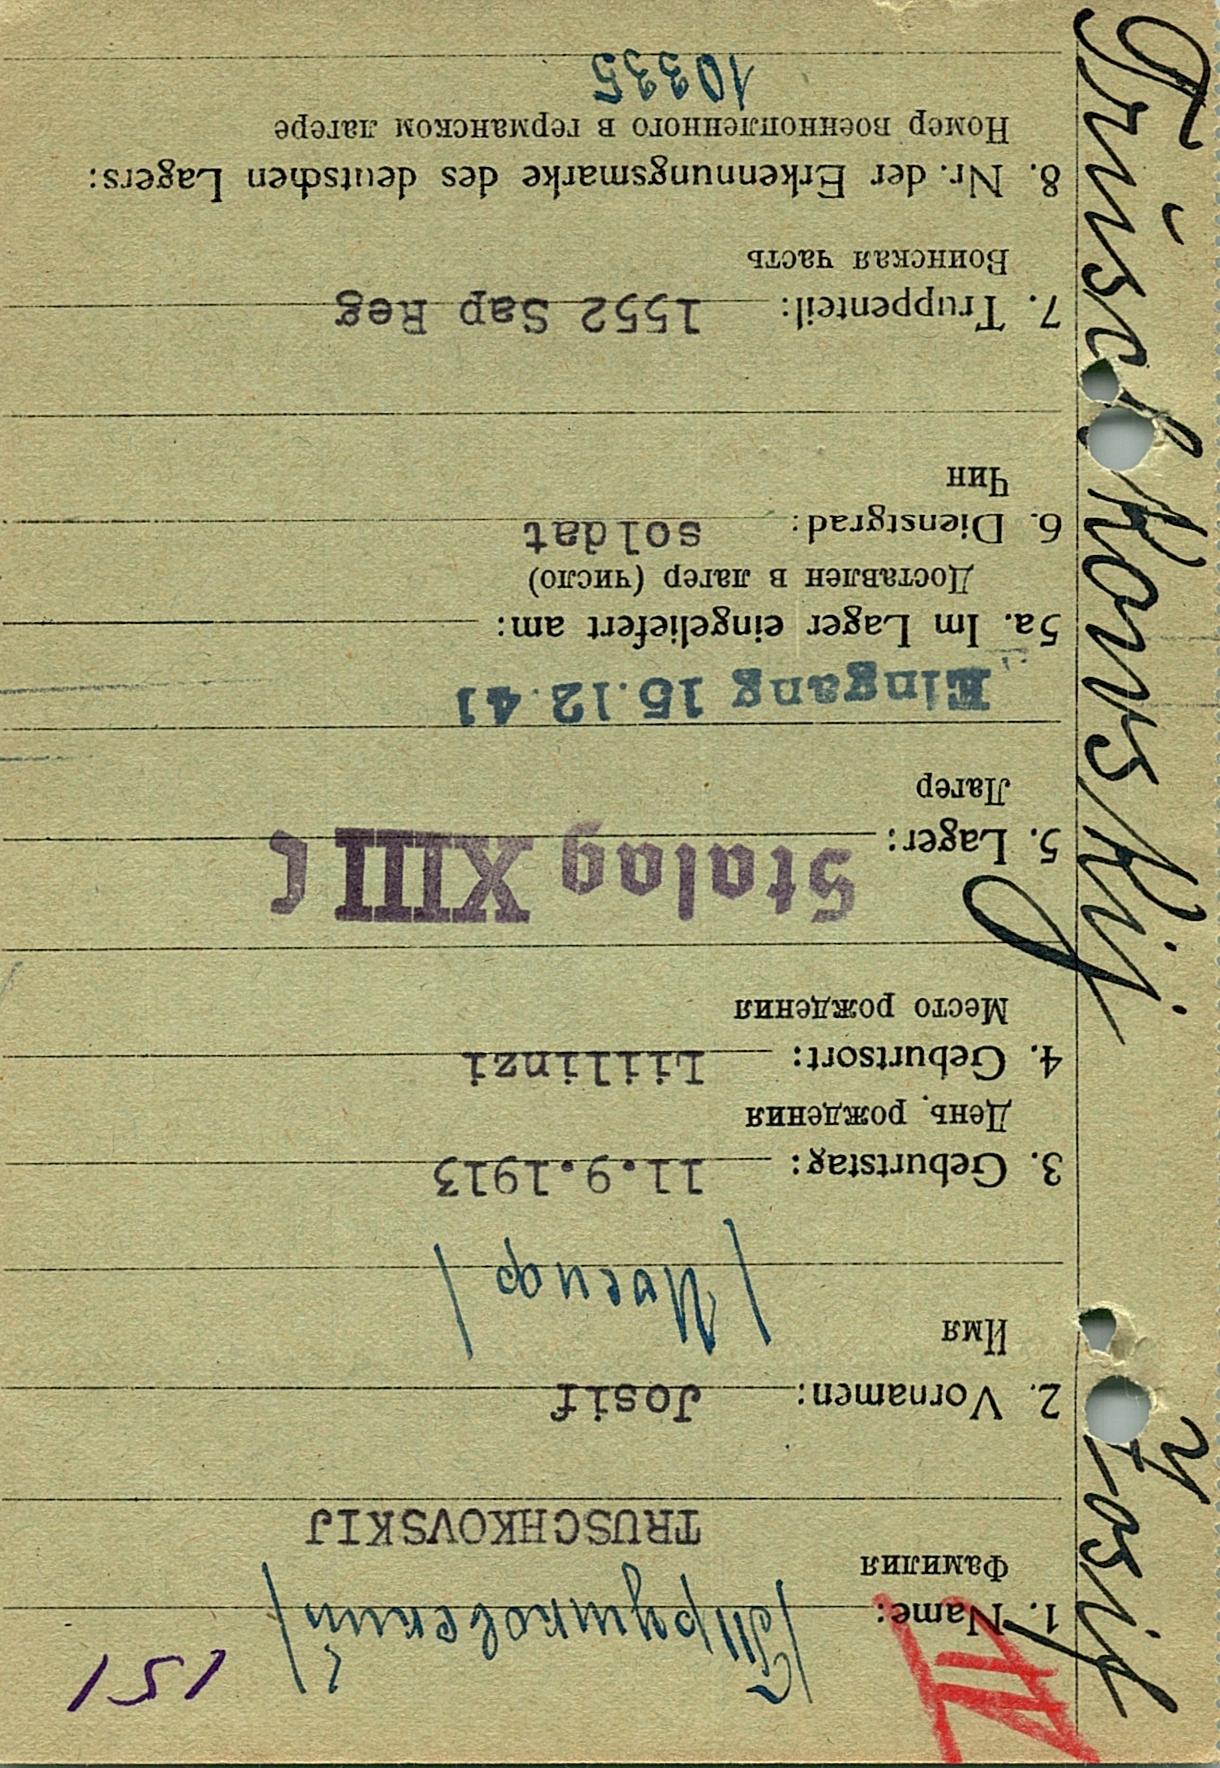 151
IV
1. Name: /Трушковский/
Фамилия
TRUSCHKOVSKIJ
2. Vornamen: Josif
Имя
/Иосиф/
3. Geburtstag: 11.9.1913
День рождения
4. Geburtsort: Liilinzi
Место рождения
5. Lager: Stalag XIII C
Лагер
Eingang 15.12.41
5a. Im Lager eingeliefert am:
Доставлен в лагер (число)
6. Dienstgrad: soldat
Чин
7. Truppenteil: 1552 Sap Reg
Воинская часть
8. Nr. der Erkennungsmarke des deutschen Lagers:
Номер военнопленного в германском лагере
10335
Truschkowskij Josif